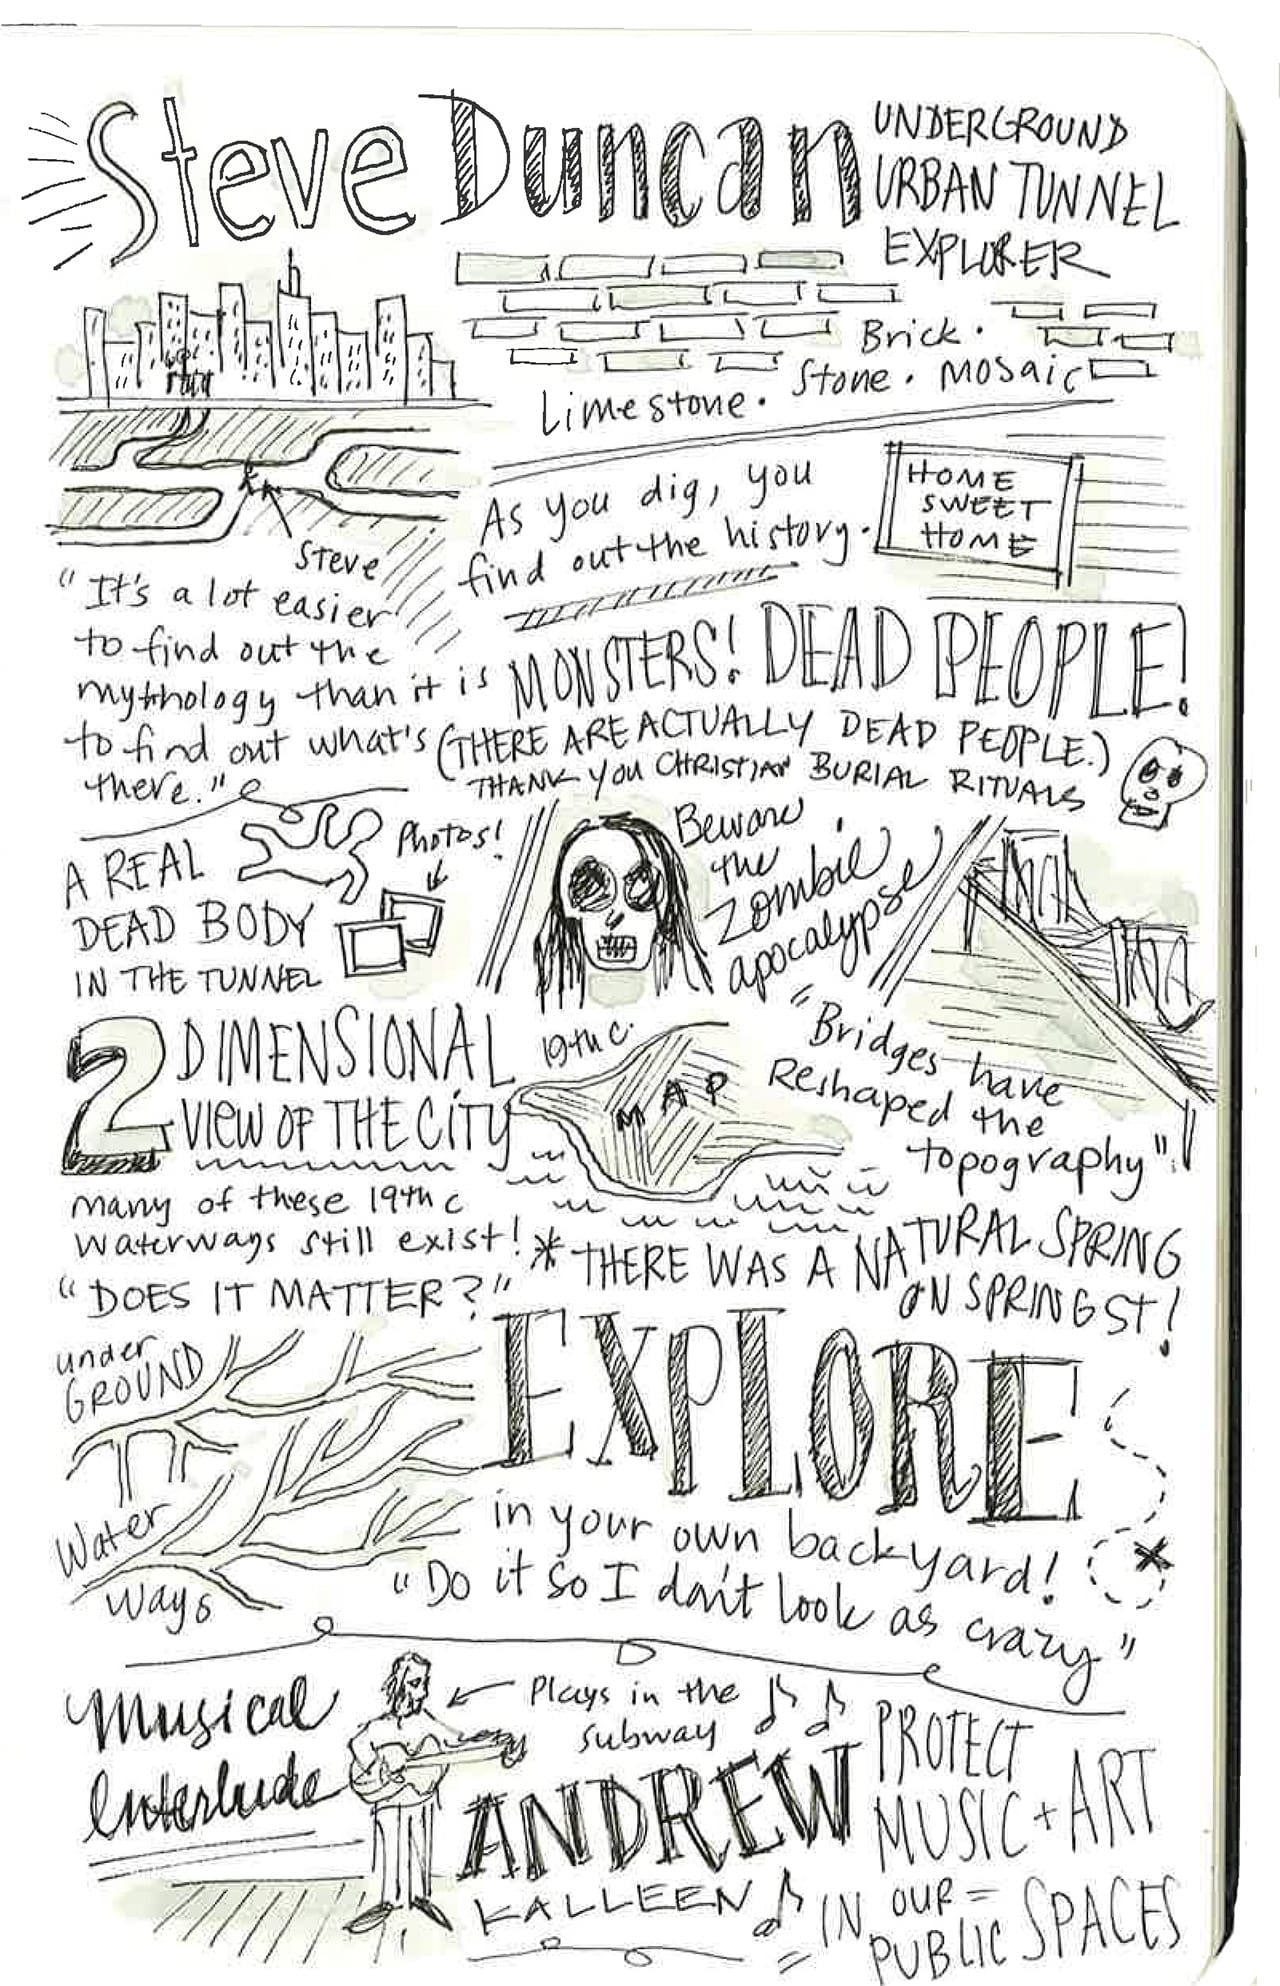 Steve Duncan
UNDERGROUND
URBAN TUNNEL
EXPLORER
Brick.
Stone. Mosaic
Limestone.
Steve
As you dig, you
find out the history.
HOME
SWEET
HOME
"It's a lot easier
to find out the
mythology than it is
to find out what's
there."
MONSTERS! DEAD PEOPLE!
(THERE ARE ACTUALLY DEAD PEOPLE.)
THANK YOU CHRISTIAN BURIAL RITUALS
A REAL
DEAD BODY
IN THE TUNNEL
Photos!
Beware
the
Zombie
apocalypse
"Bridges have
Reshaped the
topography".
2 DIMENSIONAL
VIEW OF THE CITY
19th c.
MAP
many of these 19th c
waterways still exist!
"DOES IT MATTER?"
* THERE WAS A NATURAL SPRING
ON SPRING ST!
under
GROUND
Water
Ways
EXPLORE
in your own backyard!
"Do it so I don't look as crazy"
Musical
Interlude
Plays in the
subway
ANDREW
KALLEEN
PROTECT
MUSIC + ART
IN OUR =
PUBLIC SPACES